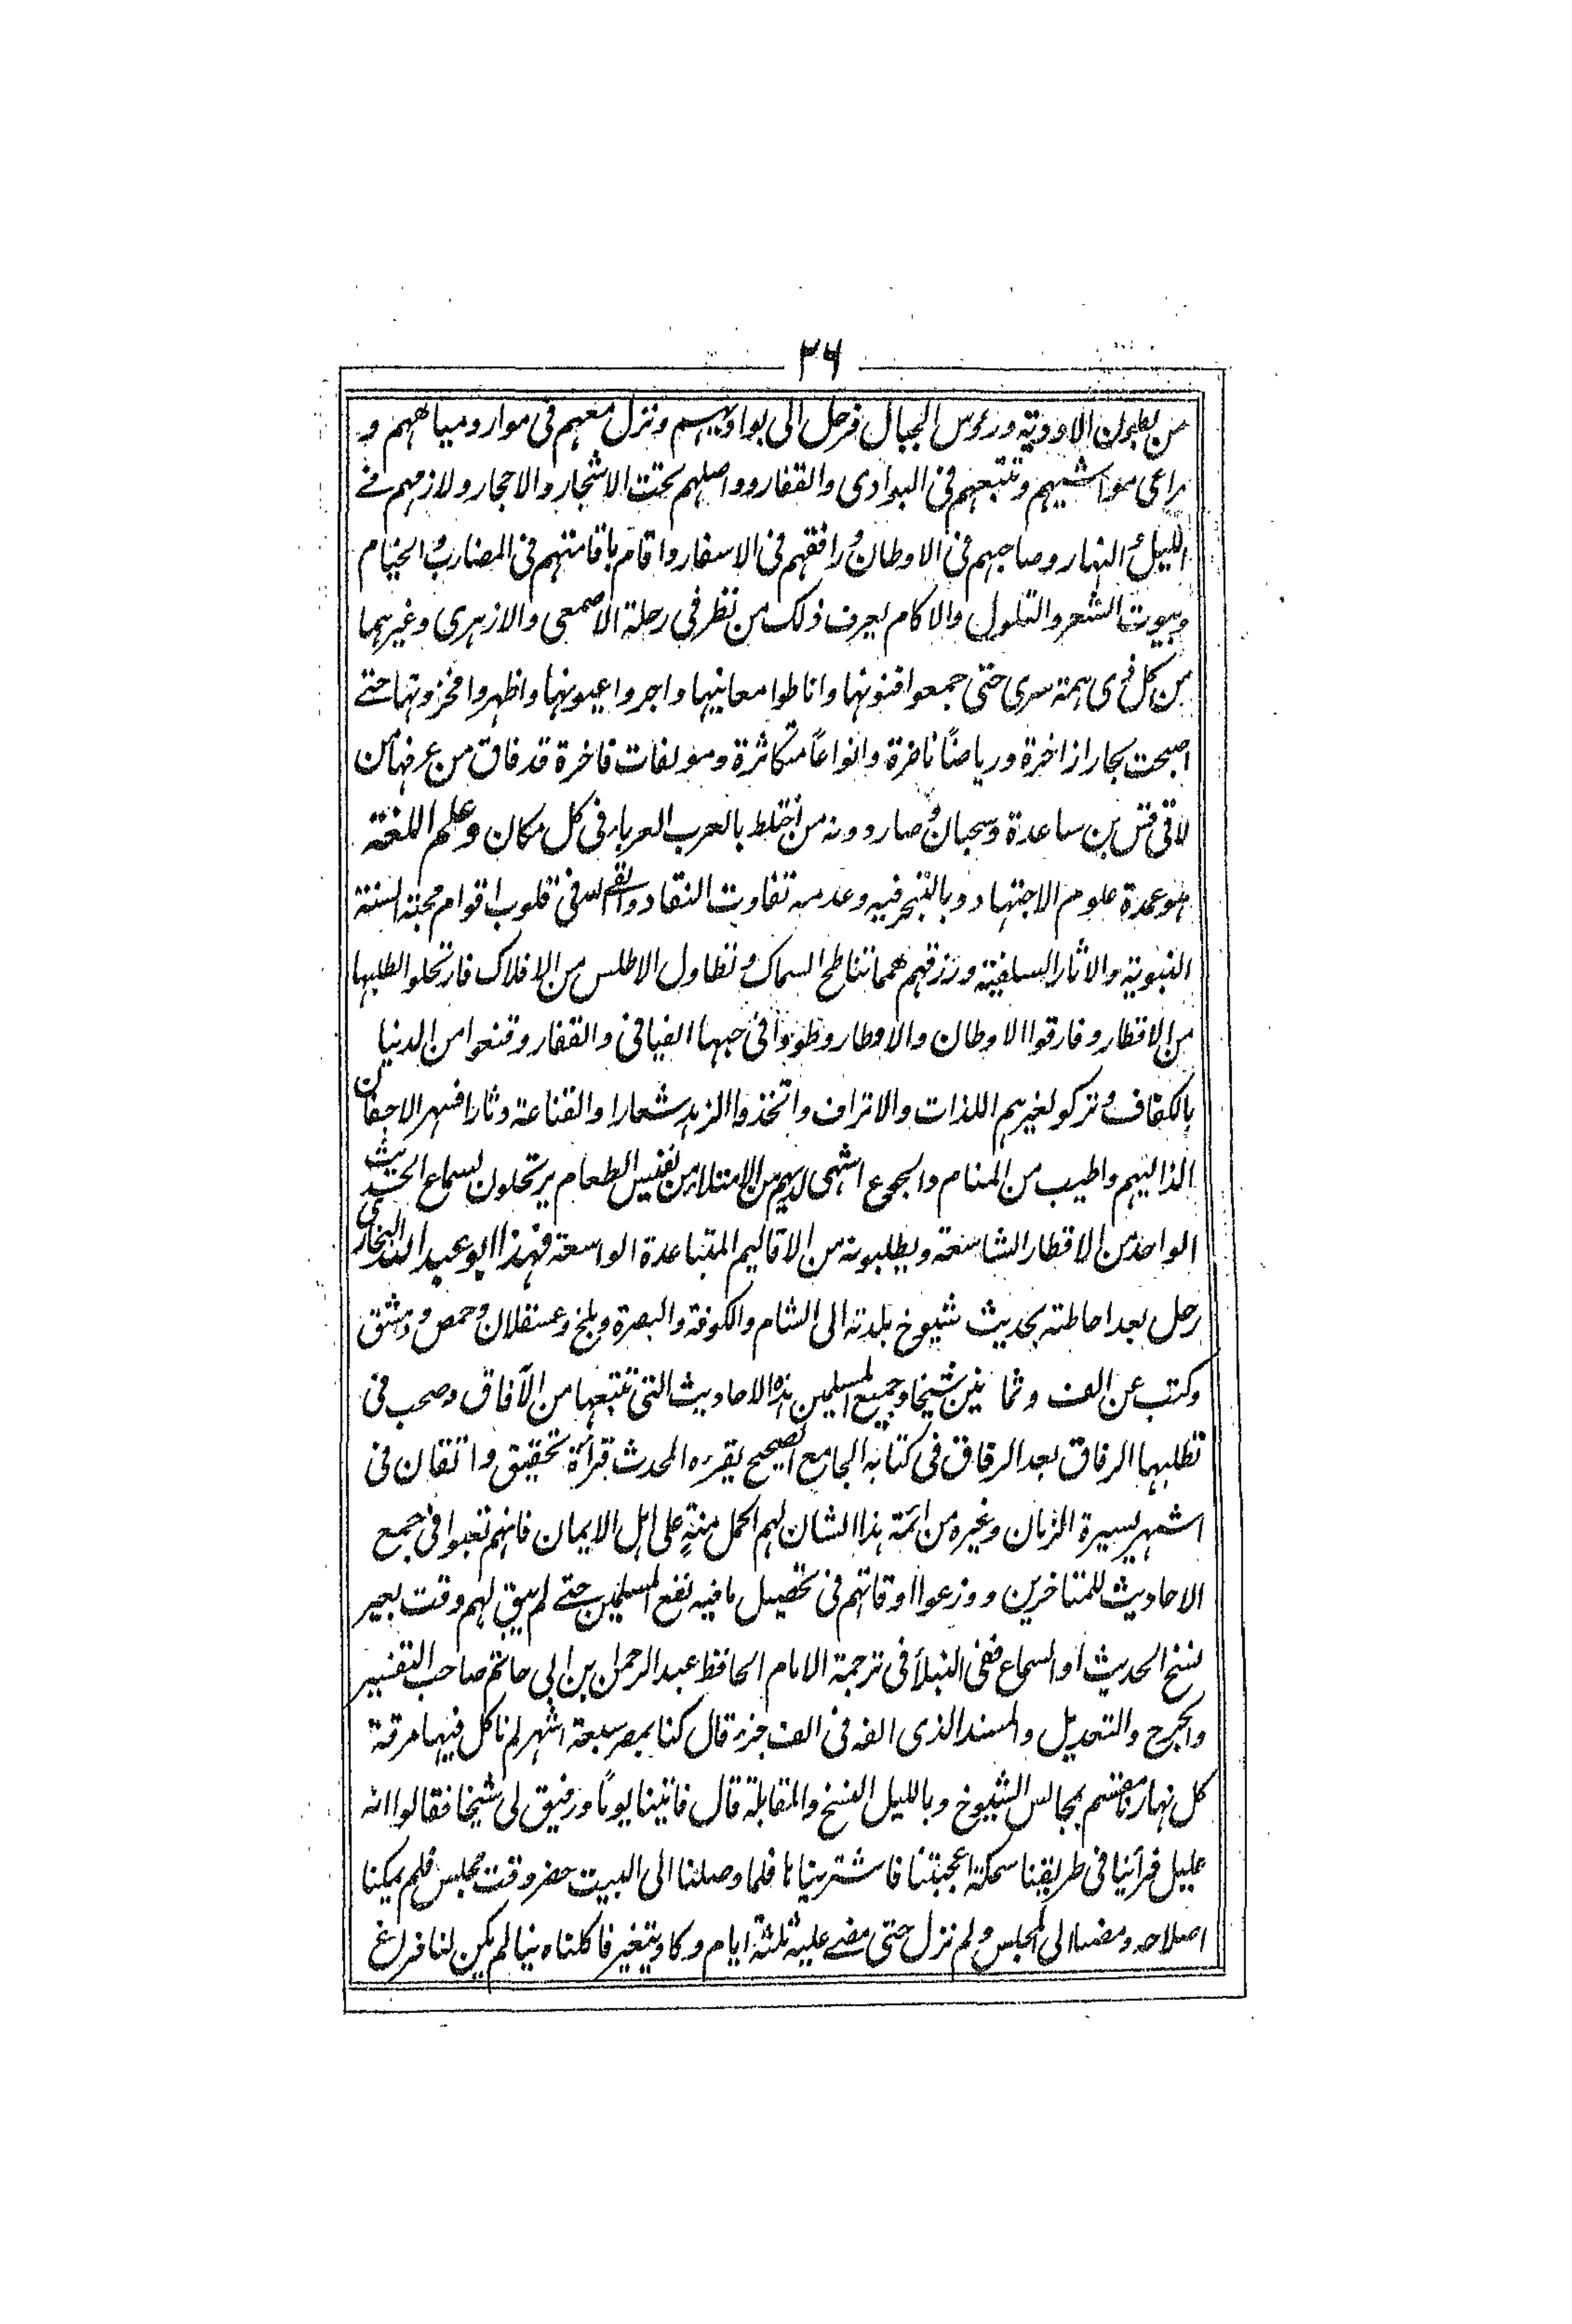 ٣٦
من بطون الاودية ورءوس الجبال فرحل الى بواديهم ونزل معهم فى موارد مياههم و
براعى مواشيهم وتتبعهم فى البوادى والقفار وواصلهم تحت الاشجار والاحجار ولازمهم فے
الليل والنهار وصاحبهم فى الاوطان ورافقهم فى الاسفار واقام باقامتهم فى المضارب والخيام
وبيوت الشعر والتلول والاكام يعرف ذلك من نظر فى رحلة الاصمعى والازهرى وغيرهما
من كل ذى همة سرى حتى جمعوا فنونها واناطوا معانيها واجروا عيونها واظهروا مخزونها حتے
اصبحت بحارا زاخرة ورياضًا ناضرة وانواعًا متكاثرة ومولفات فاخرة قد فاق من عرفها من
لاقى قس بن ساعدة وسحبان وصار دونه من اختلط بالعرب العرباء فى كل مكان وعلم اللغة
هو عمدة علوم الاجتهاد وبالتبحر فيه وعدمه تفاوت النقاد والقى الله فى قلوب اقوام محبة السنة
النبوية والاثار السلفية ورزقهم همما تناطح السماك وتطاول الاطلس من الافلاك فارتحلوا لطلبها
من الاقطار وفارقوا الاوطان والاوطار وطووا فى حبها الفيافى والقفار وقنعوا من الدنيا
بالكفاف وتركوا لغيرهم اللذات والاتراف واتخذوا الزهد شعارا والقناعة دثارا فسهر الاجفان
الذ اليهم واطيب من المنام والجوع اشهى لديهم من الامتلاء من نفيس الطعام يرتحلون لسماع الحديث
الواحد من الاقطار الشاسعة ويطلبونه من الاقاليم المتباعدة الواسعة فهذا ابو عبد الله البخارى
رحل بعد احاطته بحديث شيوخ بلدته الى الشام والكوفة والبصرة وبلخ وعسقلان وحمص ودمشق
وكتب عن الف وثمانين شيخا وجميع المسلمين هذه الاحاديث التى تتبعها من الآفاق وصحب فى
تطلبها الرفاق بعد الرفاق فى كتابه الجامع الصحيح يقرءه المحدث قرأة تحقيق واتقان فى
اشهر يسيرة الزمان وغيره من ائمة هذا الشان لهم اكمل منةٍ على اهل الايمان فانهم تعبوا فى جمع
الاحاديث للمتاخرين ووزعوا اوقاتهم فى تحصيل ما فيه نفع المسلمين حتے لم يبق لهم وقت بعير
نسخ الحديث او السماع ففى النبلأ فى ترجمة الامام الحافظ عبد الرحمن بن ابى حاتم صاحب التفسير
والجرح والتعديل والمسند الذى الفه فى الف جزء قال كنا بمصر سبعة اشهر لم ناكل فيها مرقة
كل نهار مقتسم بمجالس الشيوخ وبالليل النسخ والمقابلة قال فاتينا يومًا ورفيق لى شيخا فقالوا انه
عليل فرأينا فى طريقنا سمكة اعجبتنا فاشتريناها فلما وصلنا الى البيت حضر وقت مجلس فلم يمكنا
اصلاحه ومضينا الى المجلس ولم نزل حتى مضے عليه ثلثة ايام وكاد يتغير فاكلناه نيا لم يكن لنا فراغ